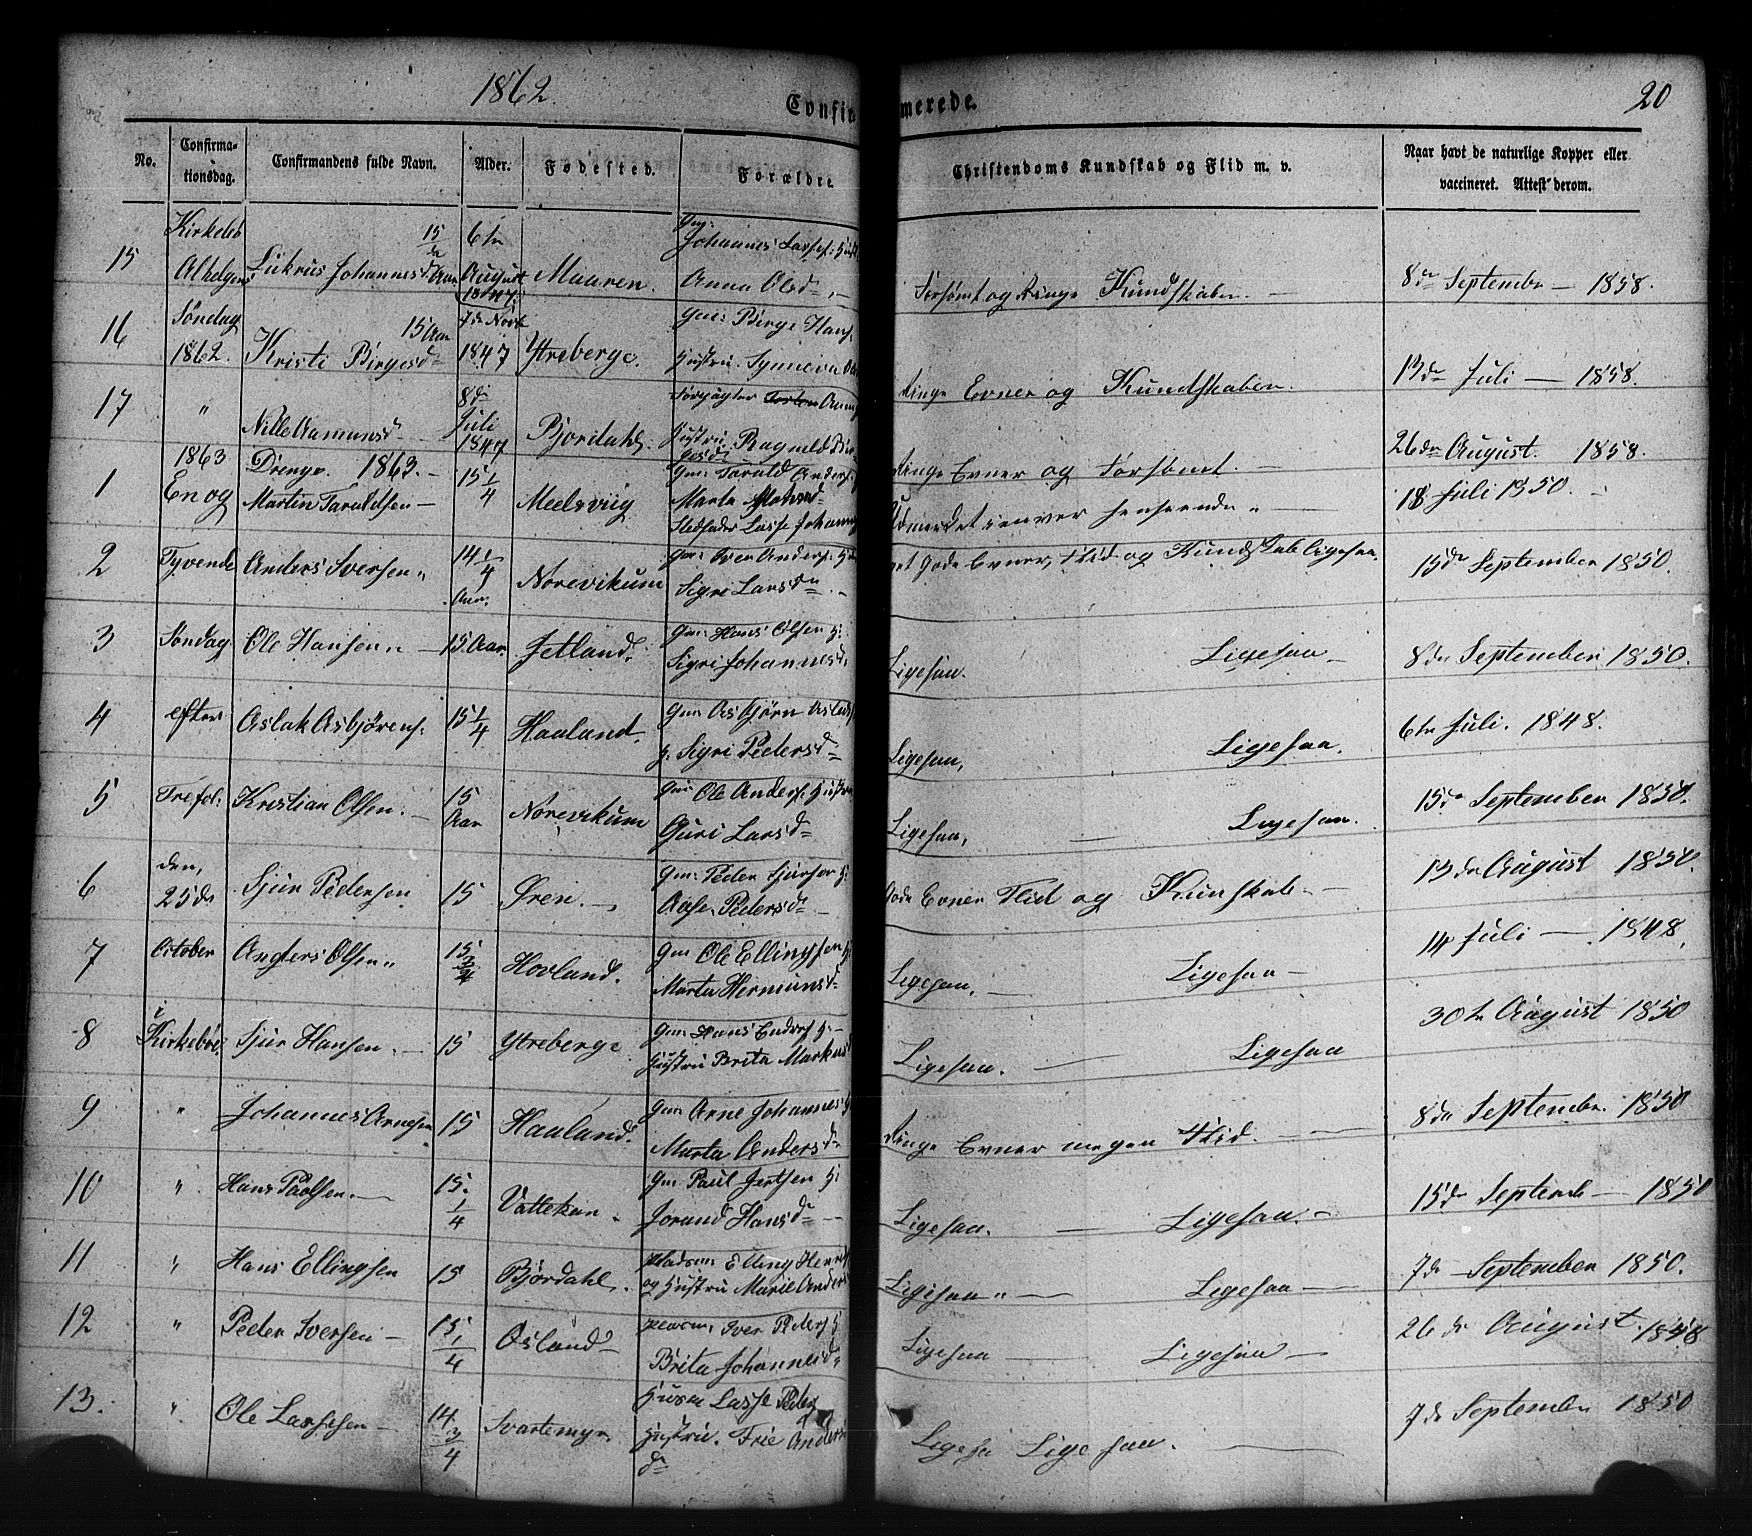 1862.
Confirmerede.
20
No.
Confirma-
tionsdag.
Confirmandens fulde Navn.
Alder.
Fødested.
Forældre.
Christendoms Kundskab og Flid m. v.
Naar havt de naturlige Kopper eller
vaccineret. Attest derom.
15 Kirkebø 15 6te Gm:
Johannes Lasses:
Alhelgens Johannesd Aar August Maaren. Anna Olsd
1847
Forsømt og Ringe Kundskaber. — 8de September — 1858.
16 Søndag 15 Aar 7de Novbr Gm: Birge Hans
1862. Kristi Birgesd 1847 Ytreberge. Hustru. Synneva
Ringe Evner og Kundskaber. 13de Juli — 1858.
17 " 8de
Nille Aamunsd — Juli Bjordahl. Hustru. Ragnild
1847
Ringe Evner og Forsømt. — 26de August. 1858.
1863 Drenge. 1863. —
1 En og Martin Taraldsen — 15 1/4 Meelsviig Gm: Tarald Anders
Marta
Stedfader Lasse Johann
18 Juli 1850.
2 Tyvende Anders Iversen " 14 1/4 Aar. Norevikum Gm: Iver Anders:
Sigri Larsd
Gode Evner, Flid og Kundskab ligesaa. 15de September 1850.
3 Søndag Ole Hansen " — 15 Aar. Jetland. Gm: Hans Olsen H:
Sigri Johannesd.
Ligesaa. Ligesaa — 8de September 1850.
4 efter Aslak Asbjørens: 15 1/4 Haaland. Gm: Asbjørn Aslaks
H. Sigri Pedersd
Ligesaa, Ligesaa. 6te Juli. 1848.
5 Trefol: Kristian Olsen. — 15 Aar Norevikum Gm: Ole Anders: Hustru
Guri Larsd
Ligesaa, — Ligesaa. 15de September 1850.
6 den, 25de Sjur Pedersen 15 Øren. — Gm: Peder Sjursen H:
Aase Pedersd —
Gode Evner Flid og Kunskab. — 13de August 1850.
7 October Anders Olsen " 15 3/4 Hovland. Gm: Ole Ellingsen H
Marta Hermunsd
Ligesaa. — Ligesaa — 14 Juli — 1848.
8 i Kirkebøe. Sjur Hansen. — 15 Ytreberge Gm: Hans Endres H: —
Hustru Brita Markus
Ligesaa. — Ligesaa 30te August 1850
9 " Johannes Arnesen 15 Haaland. Gm: Arne Johannes H
Marta Andersd
Ringe Evner megen Flid. — 8de September. 1850
10 " Hans Paulsen. — 15. 1/4 Vattekar. Gm: Paul Jertsen H:
Jorand Hansd —
Ligesaa. — Ligesaa. — 15de Septemb — 1850
11 " Hans Ellingsen 15 Bjørdahl. Pladsm: Elling Henriks
og Hustru Marie Anders
Ligesaa " — Ligesaa — 7de September 1850.
12 " Peder Iversen — 15 1/4 Osland — Iver Peders H
Brita Johannesd
Ligesaa — Ligesaa — 26de August. 1848
13. " Ole Lassesen — 14 3/4 Svartemyr. Husm Lasse Peder
Hustru. Anders
d
Ligesaa Ligesaa. — 7de September 1850